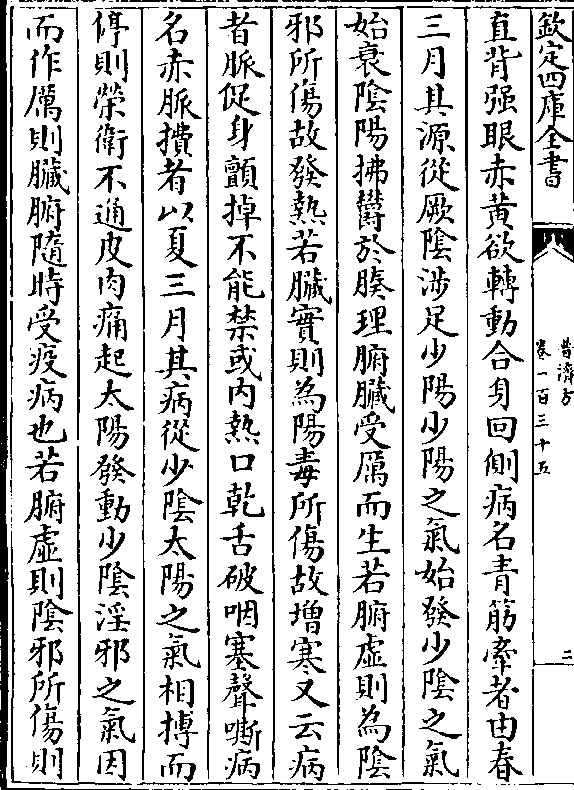 欽定四庫全書
普濟方
卷一百三十五
二
直背强眼赤黄欲轉動合身回側病名青筋牽者由春
三月其源從厥陰涉足少陽少陽之氣始發少陰之氣
始衰陰陽拂鬱於腠理腑臟受厲而生若腑虛則為陰
邪所傷故發熱若臟實則為陽毒所傷故增寒又云病
者脈促身顫掉不能禁或内熱口乾舌破咽塞聲嘶病
名赤脈攢者以夏三月其病從少陰太陽之氣相摶而
停則榮衛不通皮肉痛起太陽發動少陰淫邪之氣因
而作厲則臟腑隨時受疫病也若腑虛則陰邪所傷則